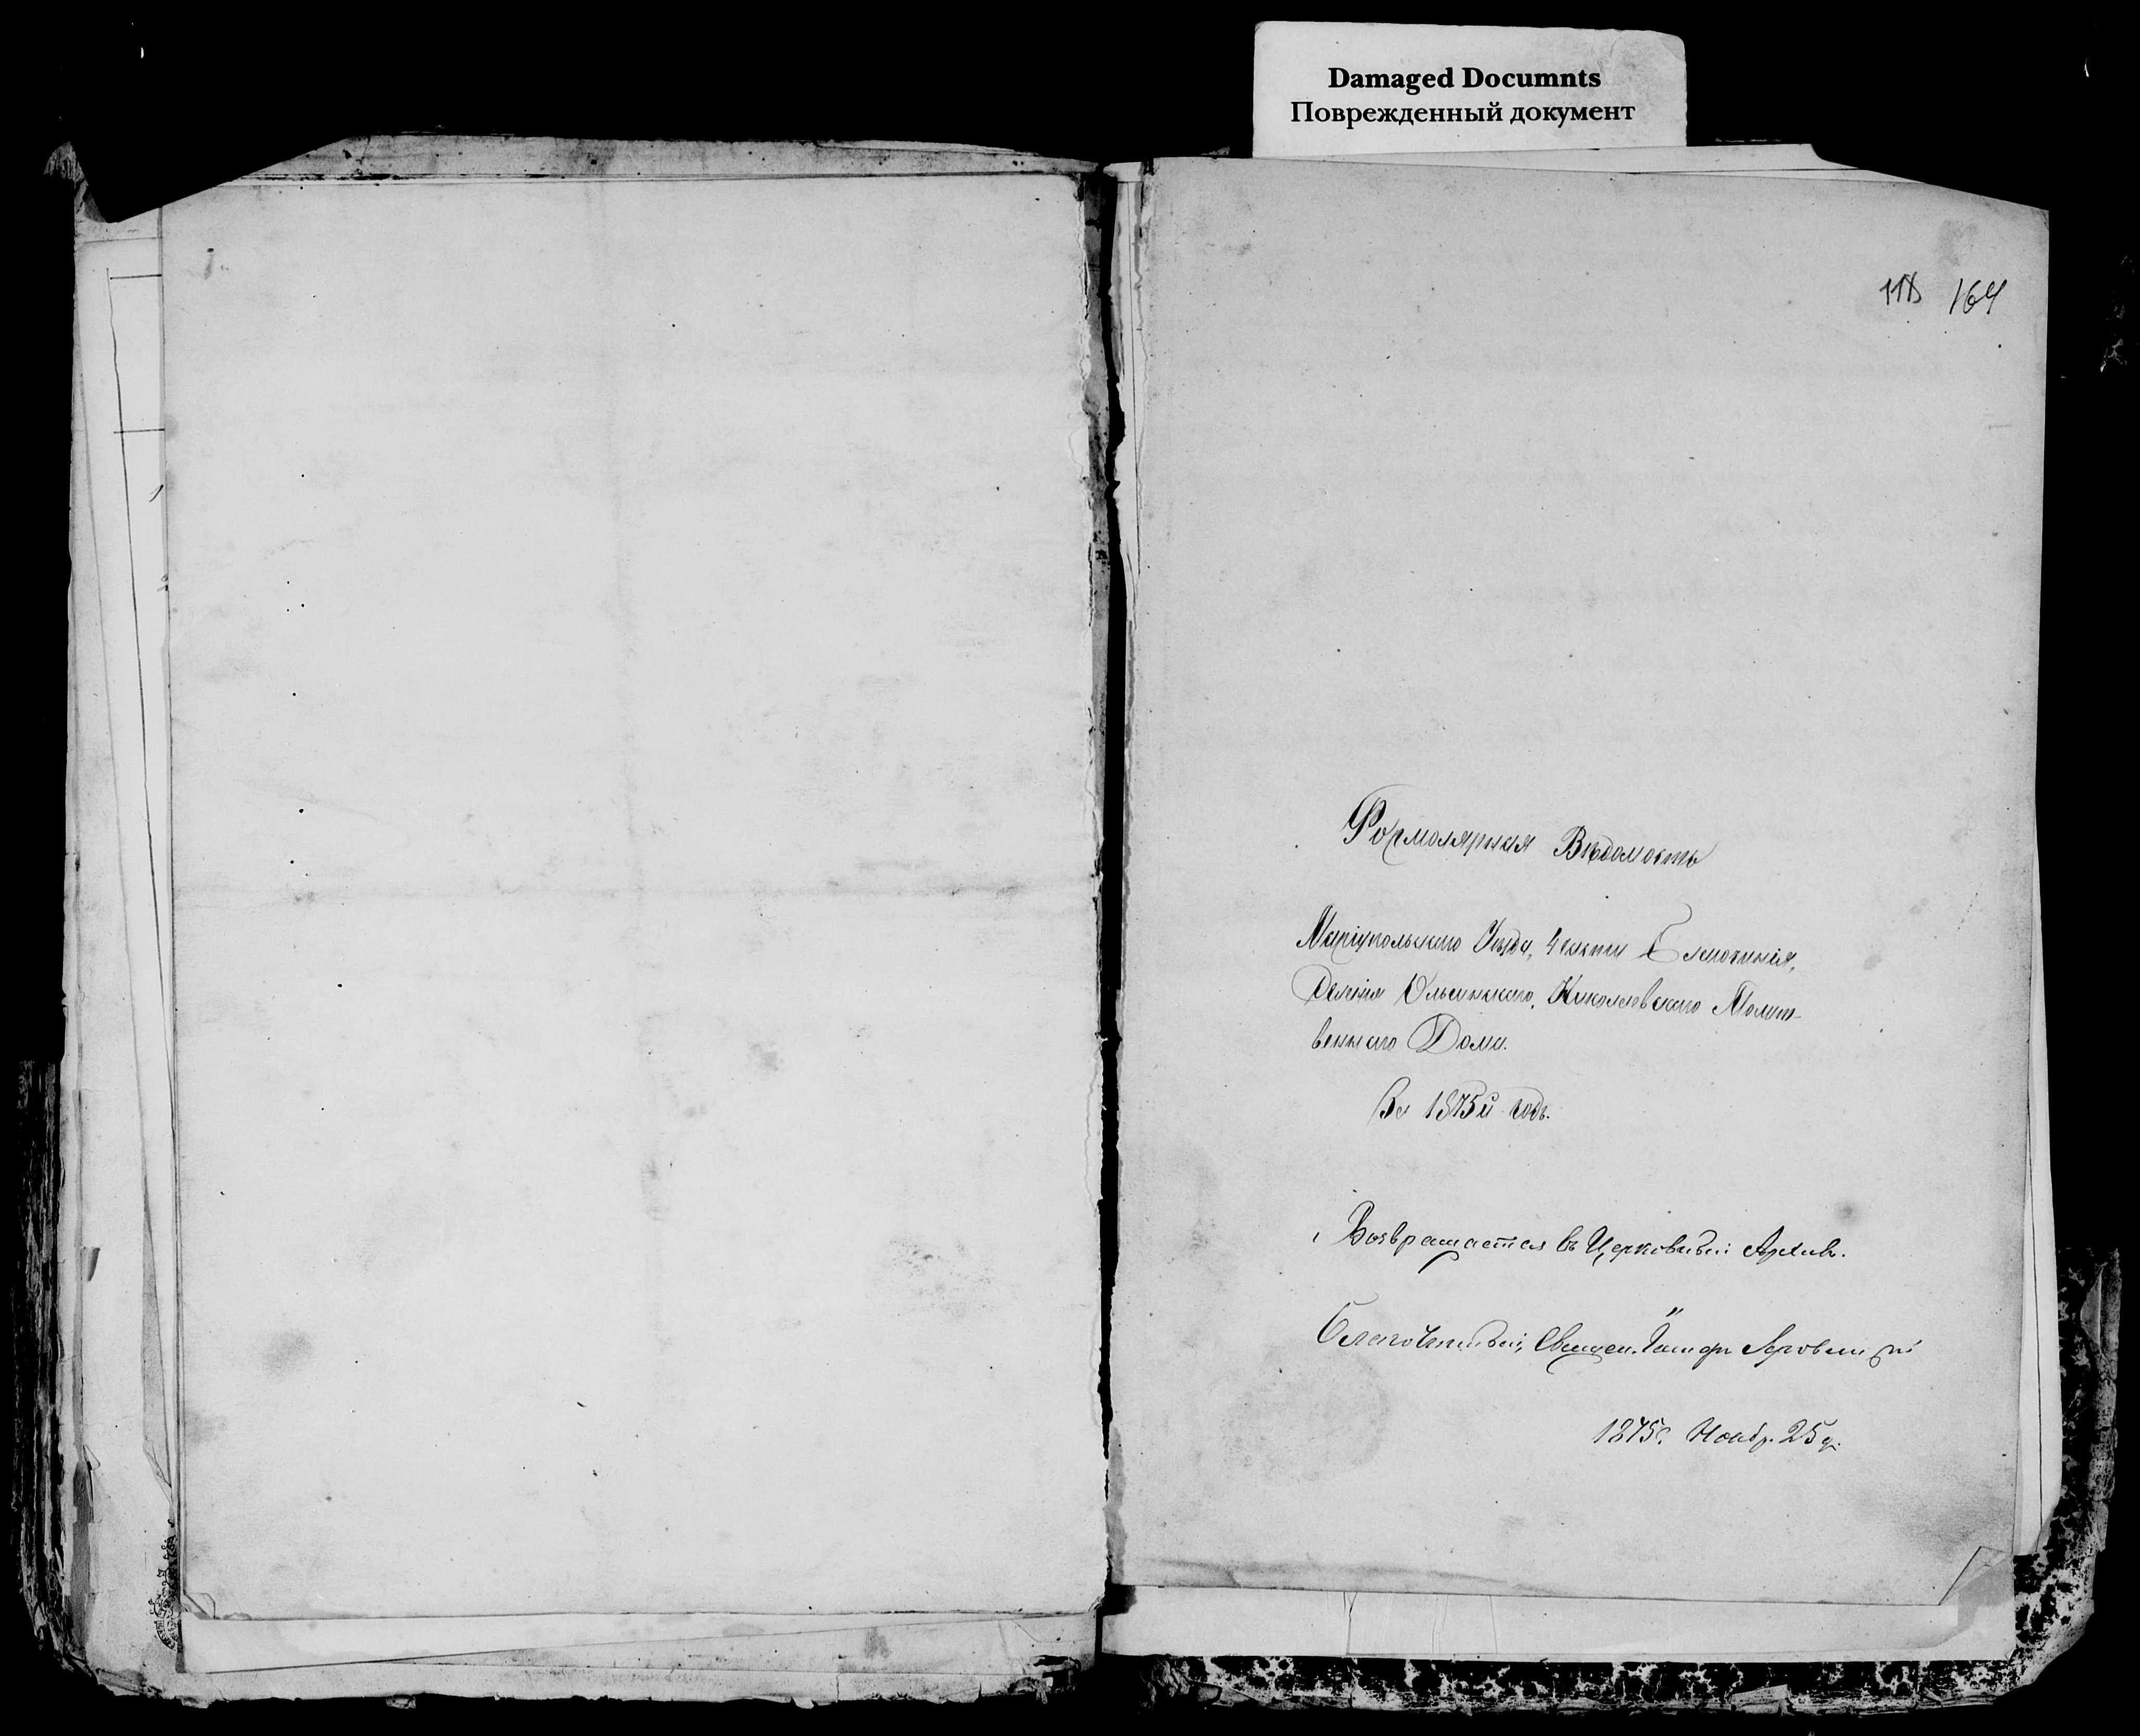 Damaged Documnts
Поврежденный документ
118 164
Формолярная Вѣдомость
Маріупольскаго Уѣзда, 4 части Благочинія,
Селенія Ольгинскаго, Николаевскаго Молит-
веннаго Дома.
За 1875й годъ.
Возвращается въ Церковный Архивъ.
Благочинный, Священ.
1875г. Ноябр. 25 д.